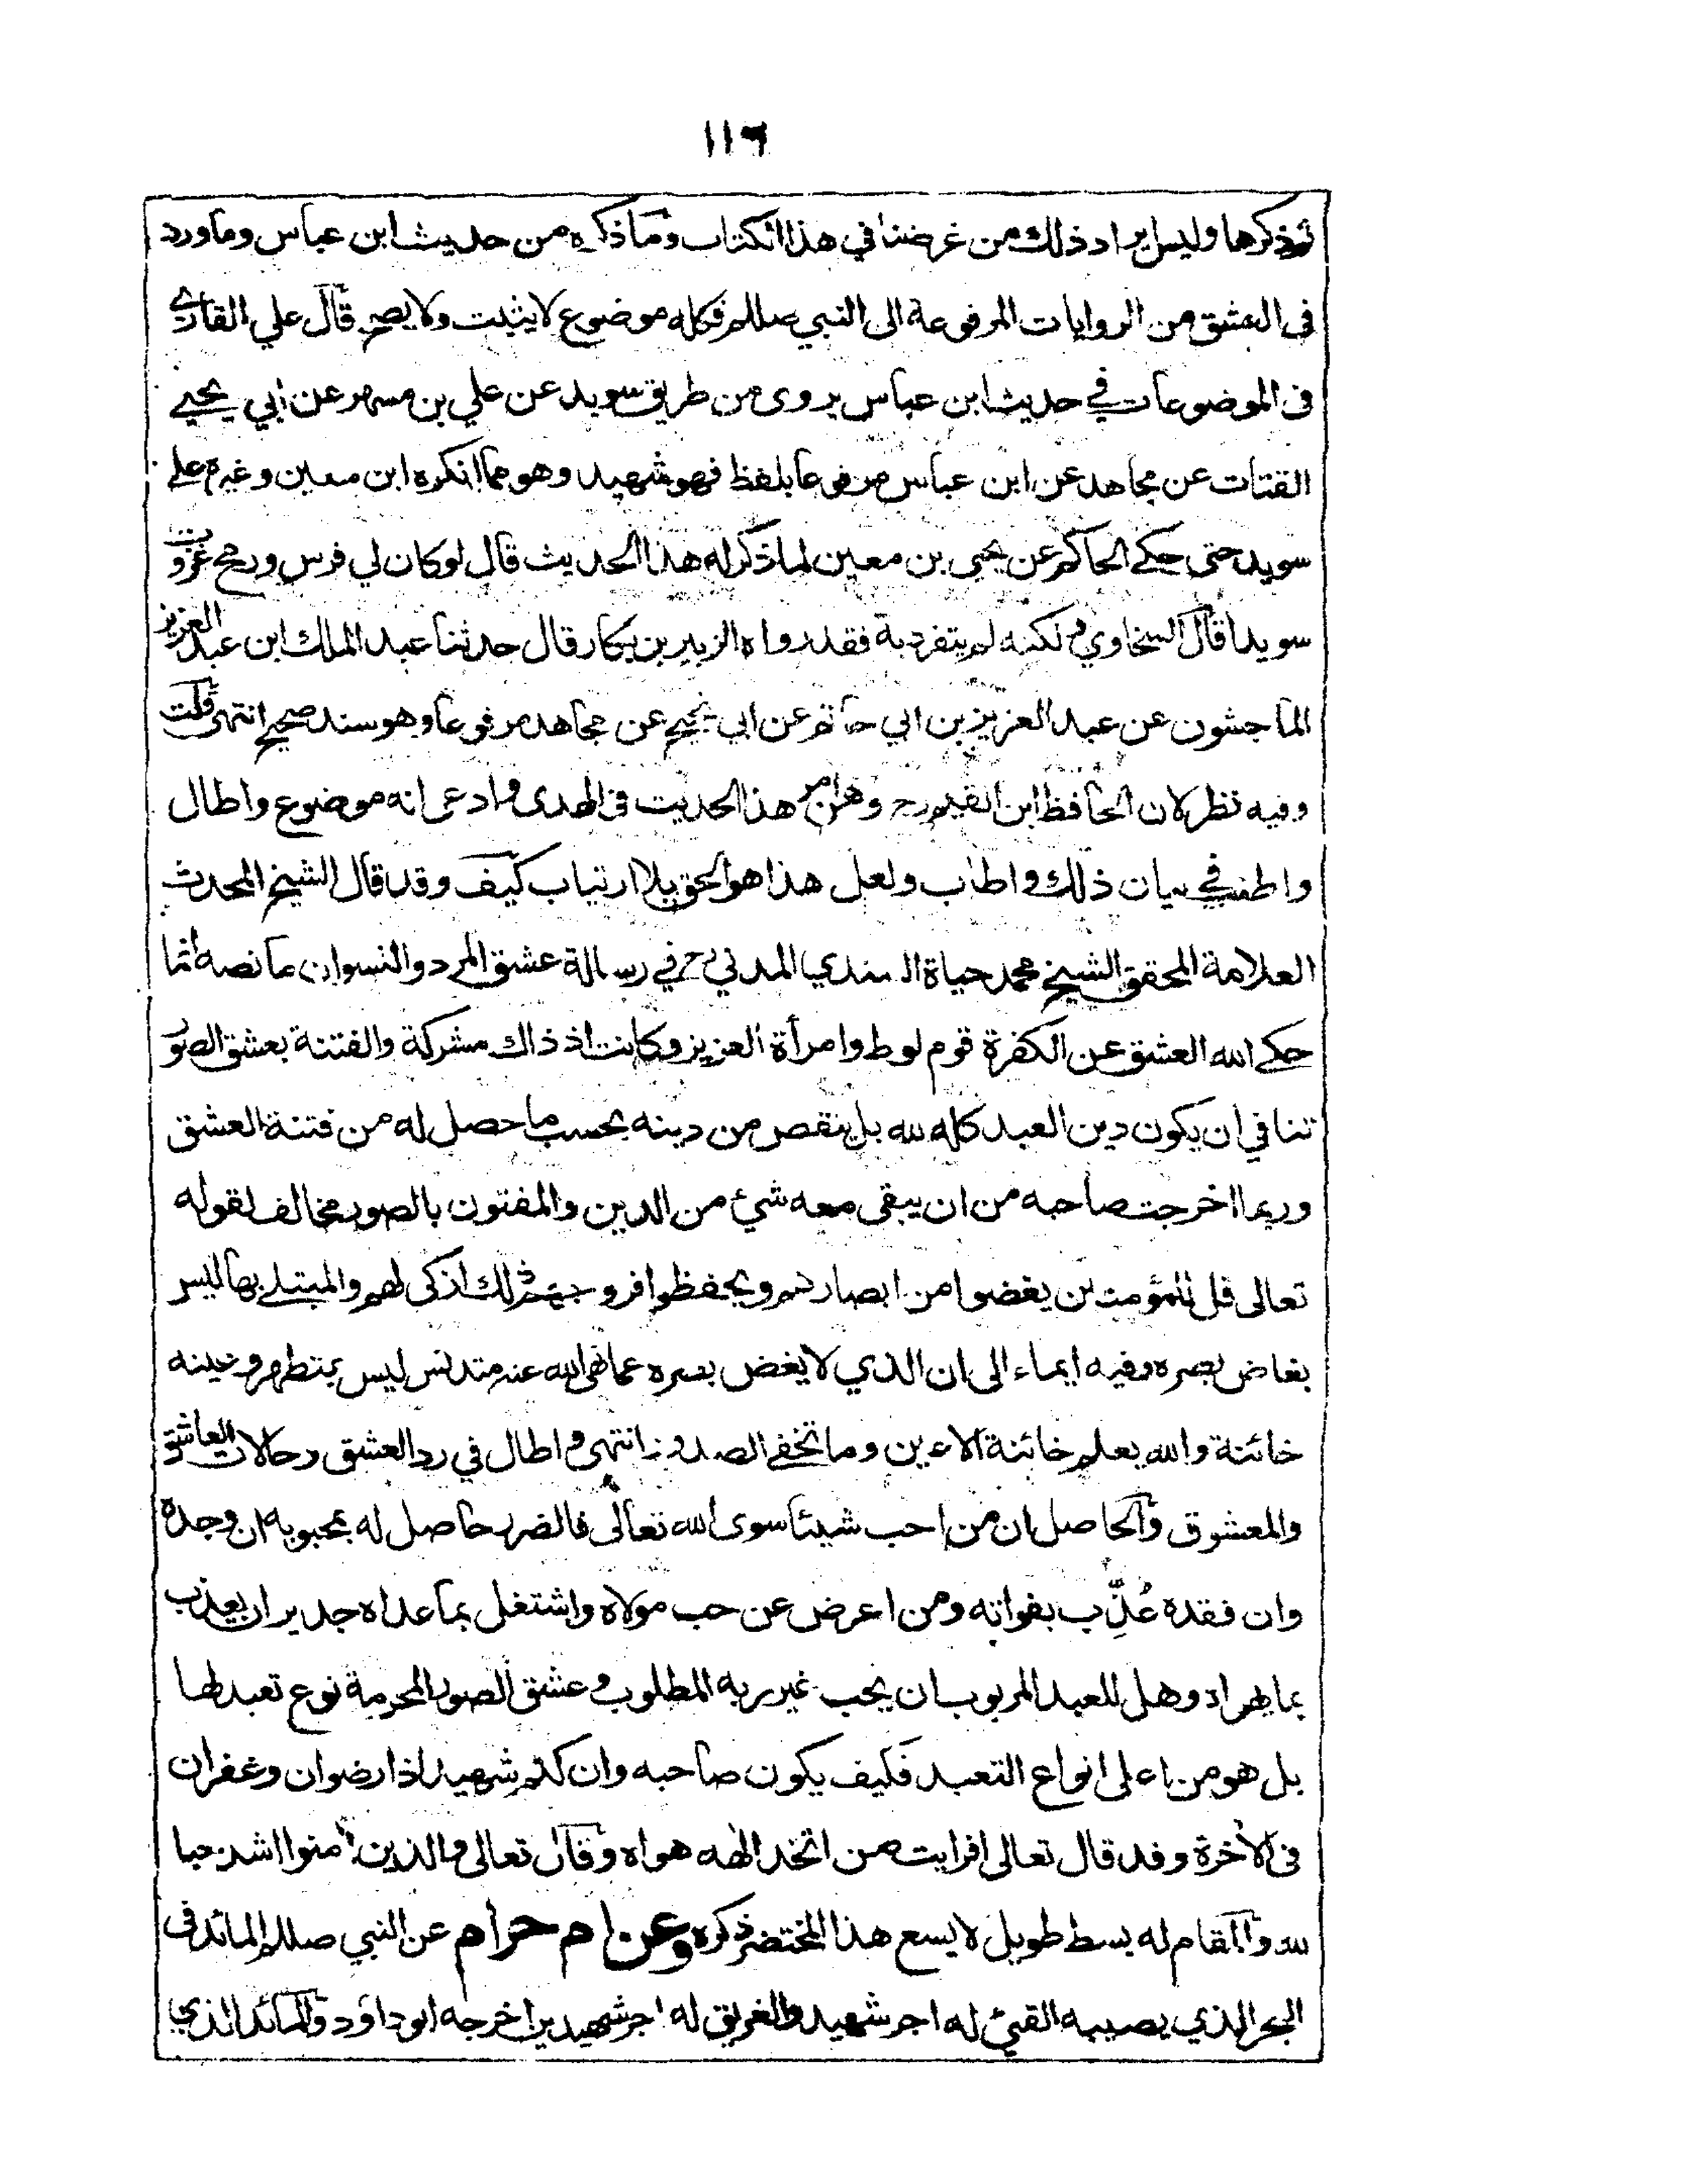 ١١٦
نذكرها وليس ايراد ذلك من غرضنا في هذا الكتاب وما ذكره من حديث ابن عباس وما ورد
في العشق من الروايات المرفوعة الى النبي صللم فكله موضوع لا يثبت ولا يصح قال علي القاري
في الموضوعات في حديث ابن عباس يروى من طريق سويد عن علي بن مسهر عن ابي يحيى
القتات عن مجاهد عن ابن عباس مرفوعا بلفظ فهو شهيد وهو مما انكره ابن معين وغيره على
سويد حتى حكى الحاكم عن يحيى بن معين لما ذكر له هذا الحديث قال لو كان لي فرس ورمح غزوت
سويدا قال السخاوي ولكنه لم يتفرد به فقد رواه الزبير بن بكار قال حدثنا عبد الملك ابن عبد العزيز
الماجشون عن عبد العزيز بن ابي حاتم عن ابي نجيح عن مجاهد مرفوعا وهو سند صحيح انتهى قلت
وفيه نظر لان الحافظ ابن القيم رح وهن امر هذا الحديث في الهدى وادعى انه موضوع واطال
واطنب في بيان ذلك واطاب ولعل هذا هو الحق بلا ارتياب كيف وقد قال الشيخ المحدث
العلامة المحقق الشيخ محمد حياة السندي المدني رح في رسالة عشق المرد والنسوان ما نصه انما
حكى الله العشق عن الكفرة قوم لوط وامرأة العزيز وكانت اذ ذاك مشركة والفتنة بعشق الصور
تنافي ان يكون دين العبد كله لله بل ينقص من دينه بحسب ما حصل له من فتنة العشق
وربما اخرجت صاحبه من ان يبقى معه شيء من الدين والمفتون بالصور مخالف لقوله
تعالى قل للمؤمنين يغضوا من ابصارهم ويحفظوا فروجهم ذلك ازكى لهم والمبتلى بها ليس
بغاض بصره وفيه ايماء الى ان الذي لا يغض بصره عما نهى الله عنه متدنس ليس بمتطهر وعينه
خائنة والله يعلم خائنة الاعين وما تخفي الصدور انتهى واطال في رد العشق وحالات العاشق
والمعشوق والحاصل ان من احب شيئا سوى الله تعالى فالضرر حاصل له بمحبوبه ان وجده
وان فقده عُذِّب بفواته ومن اعرض عن حب مولاه واشتغل بما عداه جدير ان يعذب
بما يهواه وهل للعبد المربوب ان يحب غير ربه المطلوب وعشق الصور المحرمة نوع تعبد لها
بل هو من اعلى انواع التعبد فكيف يكون صاحبه وان كتم شهيدا ذا رضوان وغفران
في الآخرة وقد قال تعالى افرايت من اتخذ الهه هواه وقال تعالى والذين آمنوا اشد حبا
لله والمقام له بسط طويل لا يسع هذا المختصر ذكره وعن ام حرام عن النبي صللم المائد في
البحر الذي يصيبه القيئ له اجر شهيد والغريق له اجر شهيدين اخرجه ابو داود والمائد الذي